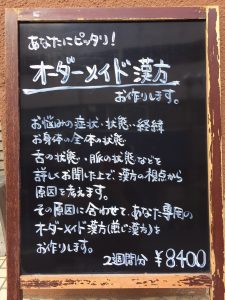 あなたにピッタリ!
オーダーメイド漢方
お作りします。
お悩みの症状・状態・経緯
お身体の全体の状態
舌の状態・脈の状態などを
詳しくお聞きした上で、漢方の視点から
原因を考えます。
その原因に合わせて、あなた専用の
オーダーメイド漢方(煎じ漢方)を
お作りします。
2週間分 ¥8400